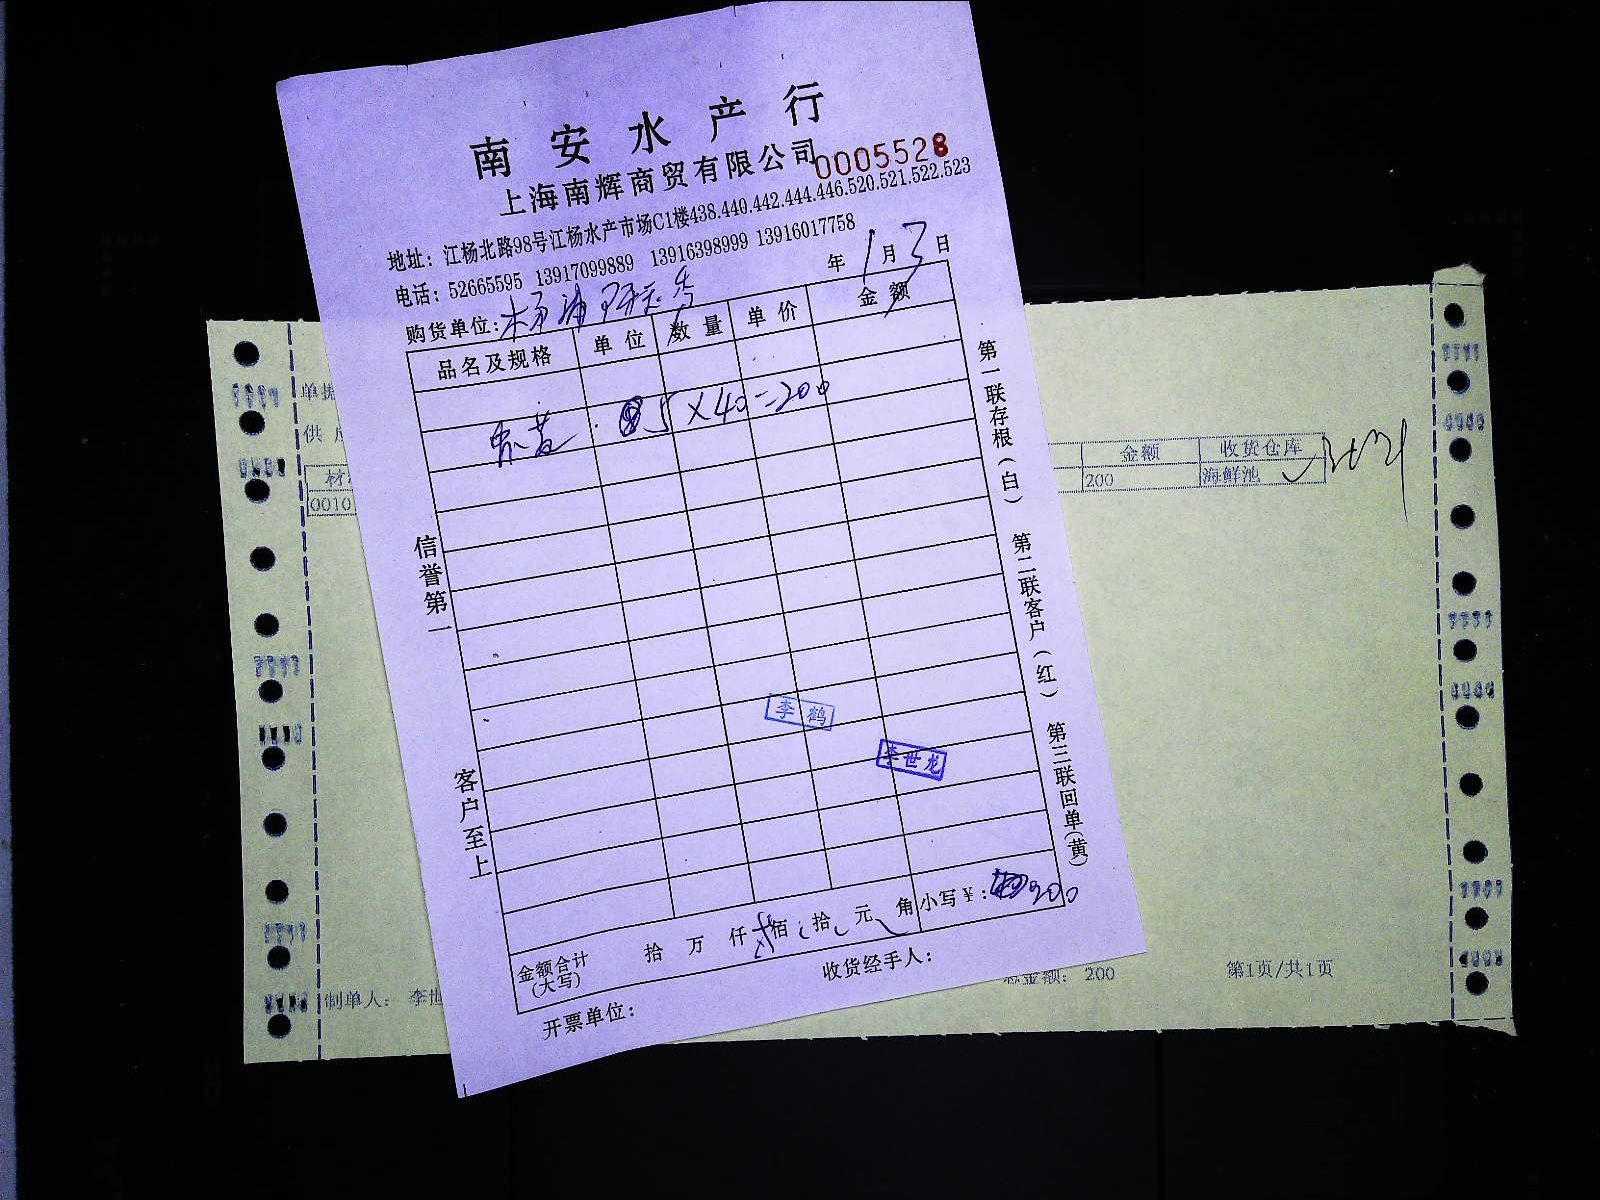 南安水产行
上海南辉商贸有限公司 0005528
地址：江杨北路98号江杨水产市场C1楼438.440.442.444.446.520.521.522.523
电话：52665595 13917099889 13916398999 13916017758
年 1 月 3 日
购货单位：杨浦
品名及规格 单位 数量 单价 金额
5×40=200
信誉第一
客户至上
第一联存根（白） 第二联客户（红） 第三联回单(黄)
李鹤
李世龙
金额合计(大写) 拾 万 仟 佰 拾 元 角 小写¥：200
收货经手人：
开票单位：
单据
供
材
0010
金额 收货仓库
200 海鲜池
制单人： 李世
总金额： 200
第1页/共1页